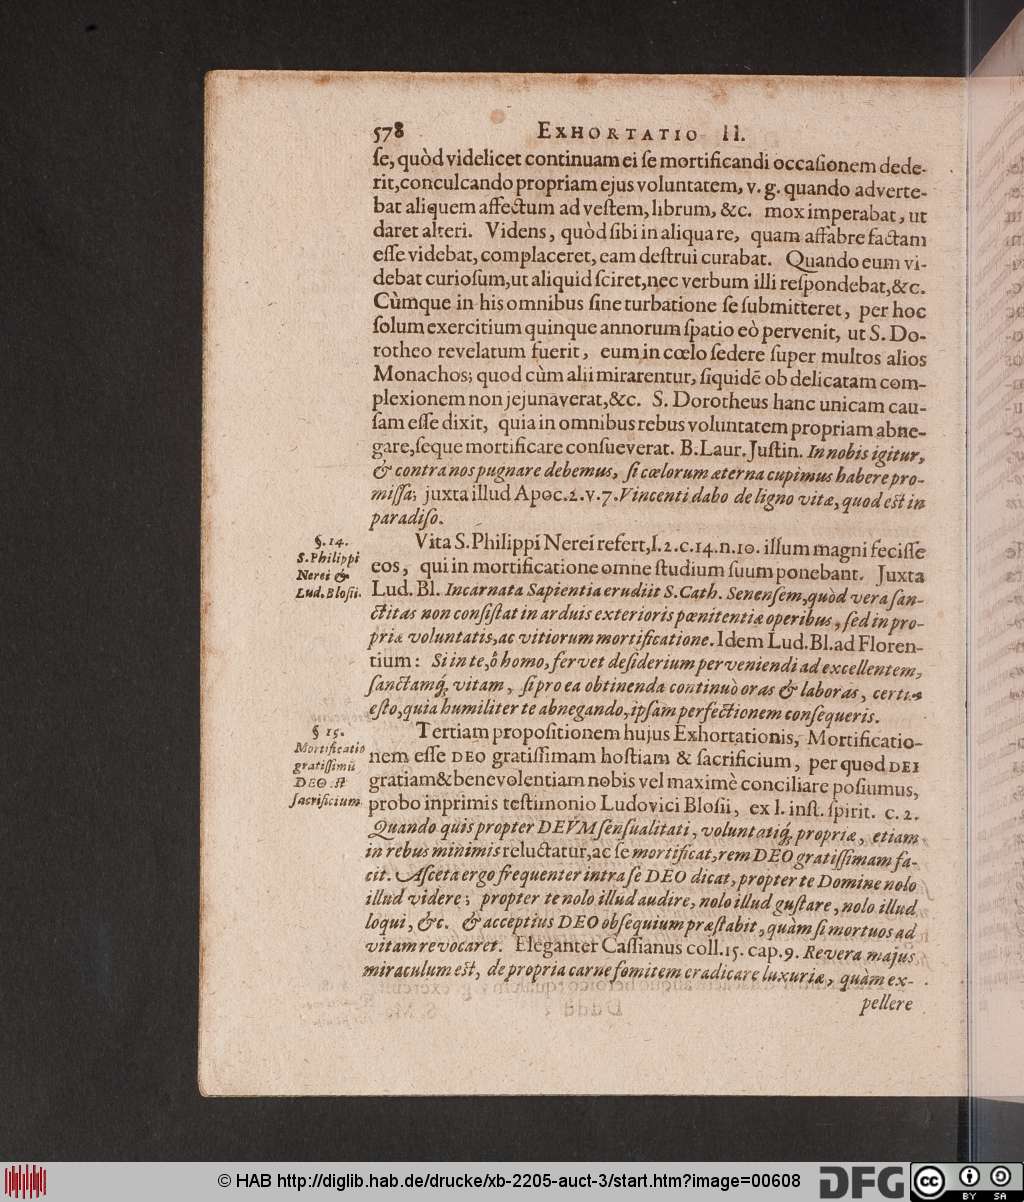 578 EXHORTATIO II.
ſe, quòd videlicet continuam ei ſe mortificandi occaſionem dede-
rit, conculcando propriam ejus voluntatem, v. g. quando adverte-
bat aliquem affectum ad veſtem, librum, &c. mox imperabat, ut
daret alteri. Videns, quòd ſibi in aliqua re, quam affabre factam
eſſe videbat, complaceret, eam deſtrui curabat. Quando eum vi-
debat curioſum, ut aliquid ſciret, nec verbum illi reſpondebat, &c.
Cùmque in his omnibus ſine turbatione ſe ſubmitteret, per hoc
ſolum exercitium quinque annorum ſpatio eò pervenit, ut S. Do-
rotheo revelatum fuerit, eum in cœlo ſedere ſuper multos alios
Monachos; quod cùm alii mirarentur, ſiquidē ob delicatam com-
plexionem non jejunaverat, &c. S. Dorotheus hanc unicam cau-
ſam eſſe dixit, quia in omnibus rebus voluntatem propriam abne-
gare, ſeque mortificare conſueverat. B. Laur. Juſtin. In nobis igitur,
& contra nos pugnare debemus, ſi cœlorum æterna cupimus habere pro-
miſſa; juxta illud Apoc. 2. v. 7. Vincenti dabo de ligno vitæ, quod eſt in
paradiſo.
§. 14.
S. Philippi
Nerei &
Lud. Bloſii.
Vita S. Philippi Nerei refert, l. 2. c. 14. n. 10. illum magni feciſſe
eos, qui in mortificatione omne ſtudium ſuum ponebant. Juxta
Lud. Bl. Incarnata Sapientia erudiit S. Cath. Senenſem, quòd vera ſan-
ctitas non conſiſtat in arduis exterioris pœnitentiæ operibus, ſed in pro-
priæ voluntatis, ac vitiorum mortificatione. Idem Lud. Bl. ad Floren-
tium: Si in te, ô homo, fervet deſiderium perveniendi ad excellentem,
ſanctamq́, vitam, ſi pro ea obtinenda continuò oras & laboras, certus
eſto, quia humiliter te abnegando, ipſam perfectionem conſequeris.
§ 15.
Mortificatio
gratiſſimū
DEO eſt
ſacrificium.
Tertiam propoſitionem hujus Exhortationis, Mortificatio-
nem eſſe DEO gratiſſimam hoſtiam & ſacrificium, per quod DEI
gratiam & benevolentiam nobis vel maximè conciliare poſſumus,
probo inprimis teſtimonio Ludovici Bloſii, ex l. inſt. ſpirit. c. 2.
Quando quis propter DEVM ſenſualitati, voluntatiq́, propriæ, etiam
in rebus minimis reluctatur, ac ſe mortificat, rem DEO gratiſſimam fa-
cit. Aſceta ergo frequenter intra ſe DEO dicat, propter te Domine nolo
illud videre; propter te nolo illud audire, nolo illud guſtare, nolo illud
loqui, &c. & acceptius DEO obſequium præſtabit, quàm ſi mortuos ad
vitam revocaret. Eleganter Caſſianus coll. 15. cap. 9. Revera majus
miraculum eſt, de propria carne fomitem eradicare luxuriæ, quàm ex-
pellere
© HAB http://diglib.hab.de/drucke/xb-2205-auct-3/start.htm?image=00608
DFG
cc BY SA